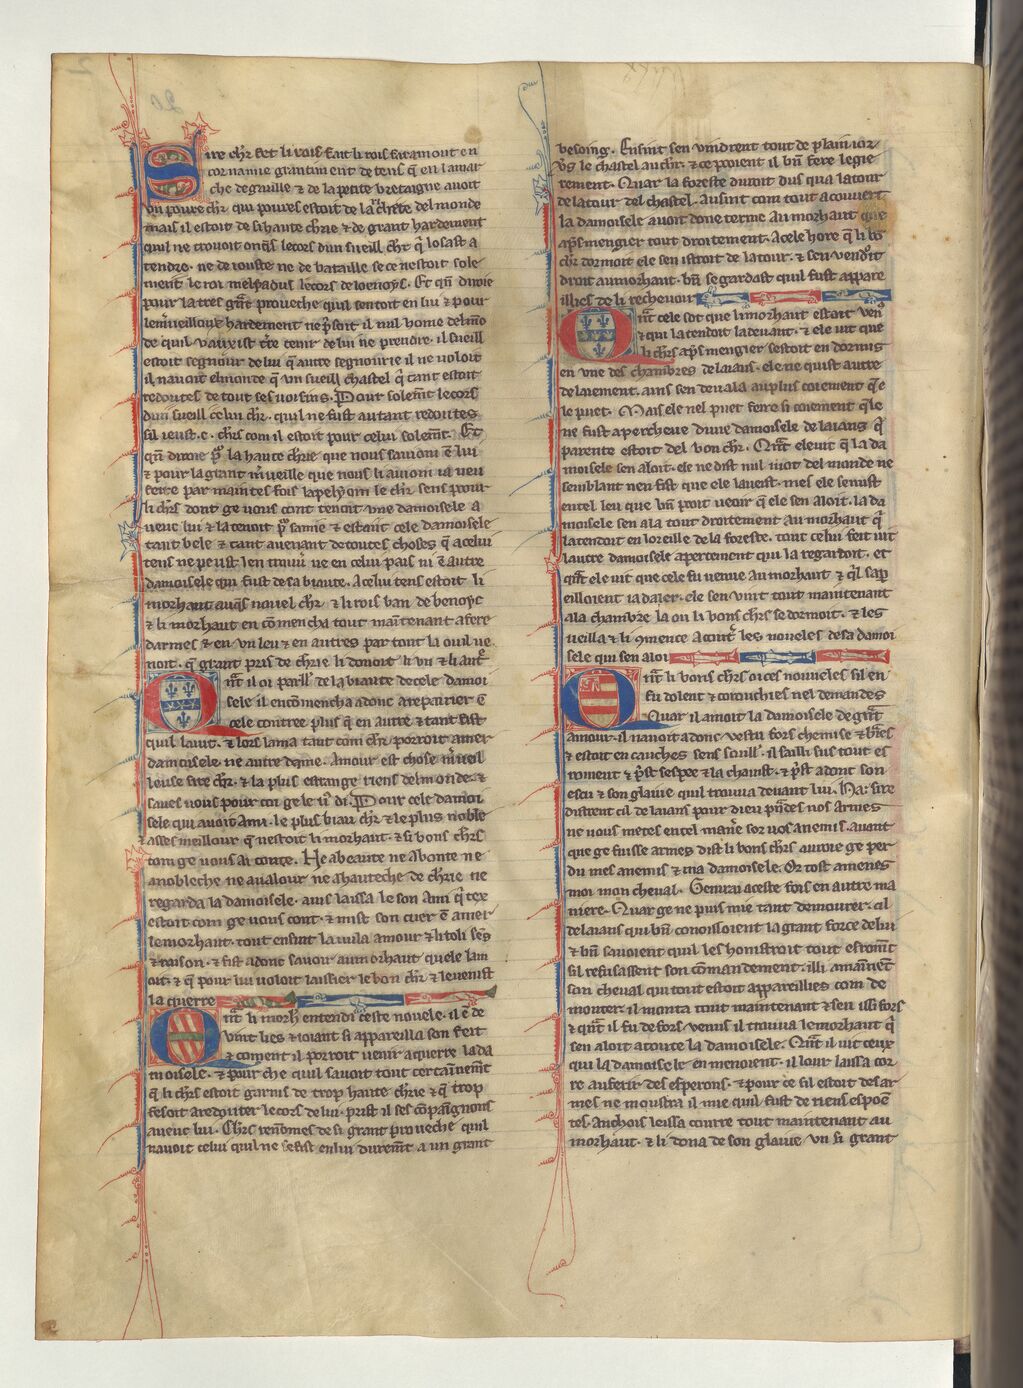 Sire chr̄ fet li rois fait li rois faramont en
cornuaille grantment de tens q̄ en la mar
che de gaulle & de la petite bretaigne auoit
vn poure chr̄ qui poures estoit de la richete del monde
mais il estoit de si haute chr̄ie & de grant hardement
quil ne trouoit onq̄s le cors dun sueill chr̄ q̄ losast a
tendre. ne de iouste ne de bataille se ce nestoit sole
ment le roi meliadus le cors de loenoys. Et qn̄ diroie
pour la tres grāt proueche quil sentoit en lui & pour
le mrueilloux hardement ne p̄soit il nul home del mōde
de quil vausist tr̄e tenir de lui ne prendre. il sueill
estoit segnour de lui q̄ autre segnourie il ne voloit
il nauoit el monde q̄ vn sueill chastel q̄ tant estoit
redoutes de tout ses uoisins. Pour solem̄t le cors
dun sueill celui chr̄. quil ne fust autant redoutes
sil ieust .c. chr̄s com il estoit pour celui solem̄t. Et
qn̄ diroie por la haute chr̄ie que nous sauiom ē lui
& pour la grant mrueille que nous li auiom ia ueu
feire par maintes fois lapelyom le chr̄ sens poour
li chr̄s dont ge vous cont tenoit vne damoisele a
ueuc lui & la tenoit por samie & estoit cele damoisele
tant bele & tant auenant de toutes choses q̄ a celui
tens ne peust len trouu̅ ne en celui pais ni ē autre
damoisele qui fust de sa biaute. A celui tens estoit li
morhaut auq̄s nouel chr̄ & li rois ban de benoyc
& li morhaut en cōmencha tout maītenant a fere
darmes & en vn leu & en autres par tout la ou il ue
noit. q̄ grant pris de chr̄ie li donoit li vn & li autr̄
Qn̄t il oi parler de la biaute de cele damoi
sele il encōmencha adonc a repairier ē
cele contree plus q̄ en autre & tant fist
quil la uit. & lors lama tant com chr̄ porroit amer
damoisele ne autre dame. Amour est chose mrueil
leuse sire chr̄. & la plus estrange riens del monde. &
saues vous pour coi ge le uos di. Pour cele damoi
sele qui auoit ami. le plus biau chr̄ & le plus noble
asses meillour q̄ nestoit li morhaut. & si bons chr̄s
com ge vous ai conte. Ne a beaute ne a bonte ne
a noblèche ne a ualour ne a hauteche de chr̄ie ne
regarda la damoisele. ains laissa le son ami q̄ tex
estoit com ge vous cont. & mist son cuer ē amer
le morhaut. tout ensint laueugla amour & li toli sēs
& raison. & fist adont sauoir au morhaut quele lam
oit. & q̄ pour lui voloit laissier le bon chr̄ & le uenist
la querre
Qn̄t li morh̄ entendi ceste nouele. il ē de
uint lies & ioiant si appareilla son feit
& coment il porroit uenir a querre la da
moisele. & pour che quil sauoit tout certainem̄t
q̄ li chr̄s estoit garnis de trop haute chr̄ie & q̄ trop
fesoit a redouter le cors de lui. prist il ses cōpaignons
aueuc lui. Chr̄s renōmes de si grant proueche quil
nauoit celui quil ne se fist en lui durem̄t a un grant
besoing. Ensint sen vindrent tout de plain ior
vers le chastel au chr̄. & ce pooient il bn̄ fere legie
rement. Quar la foreste duroit dus qua la tour
de la tour del chastel. ausint com tout a couuert
la damoisele auoit done terme au morhaut que
aps mengier tout droitement. a cele hore q̄ li bō
chr̄ dormoit ele sen istroit de la tour. & sen vendroit
droit au morhaut. bn̄ se gardast quil fust appare
illies de li recheuoir
Qn̄t cele sot que li morhaut estoit venu
& qui latendoit la deuant. & ele uit que
li chr̄s aps mengier sestoit en dormis
en vne des chambres de laians. ele ne quist autre
delaiement. ains sen deuala au plus coiement q̄le
le puet. Mais ele nel puet feire si coiement q̄le
ne fust apercheue dune damoisele de laians q̄
parente estoit del bon chr̄. Qn̄t ele uit q̄ la da
moisele sen aloit. ele ne dist nul mot del monde ne
semblant nen fist que ele la ueist. mes ele se mist
en tel leu que bn̄ pout ueoir q̄ ele sen aloit. la da
moisele sen ala tout droitement au morhaut q̄
latendoit en loreille de la foreste. tout celui feit uit
lautre damoisele apertement qui la regardoit. et
qn̄t ele uit que cele fu uenue au morhaut & q̄l sap
eilloient ia daler. ele sen vint tout maintenant
a la chambre la ou li bons chr̄s se dormoit. & les
ueilla & li 9mence a conter les noueles de sa damoi
sele qui sen aloi
Qn̄t li bons chr̄s oi ces nouueles sil en
fu dolent & corouchies nel demandes
Quar il amoit la damoisele de grāt
amour. il nauoit adonc vestu fors chemise & braies
& estoit en cauches sens soriill'. il sailli sus tout es
roment & prist sespee & la chainst. & prist adont son
escu & son glaiue quil trouua deuant lui. Ha: sire
distrent cil de laians pour dieu prēdes nos armes
ne uous metes en tel manr̄e sor uos anemis. auant
que ge fuisse armes dist li bons chr̄s auroie ge per
du mes anemis & ma damoisele. Or tost amenes
moi mon cheual. Ge nirai a ceste fois en autre ma
niere. Quar ge ne puis mie tant demourer. cil
de laians qui bn̄ conoissoient la grant force de lui
& bn̄ sauoient quil les honniroit tout esrom̄t
sil refusassent son cōmandement. illi amain̄ent
son cheual qui tout estoit appareillies com de
monter. il monta tout maintenant & sen issi fors
& qn̄t il fu defors venus il trouua le morhaut q̄
sen aloit a toute la damoisele. Qn̄t il uit ceux
qui la damoisele en menoient. il lour laissa cor
re au ferir des esperons. & pour ce sil estoit desar
mes ne moustra il mie quil fust de riens espoen
tes. Anchois leissa courre tout maintenant au
morhaut. & li dona de son glaiue vn si grant